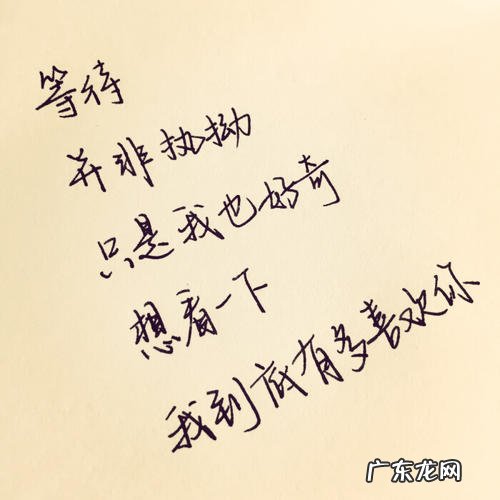 等待
并非执拗
只是我也好奇
想看一下
我到底有多喜欢你
广东龙网